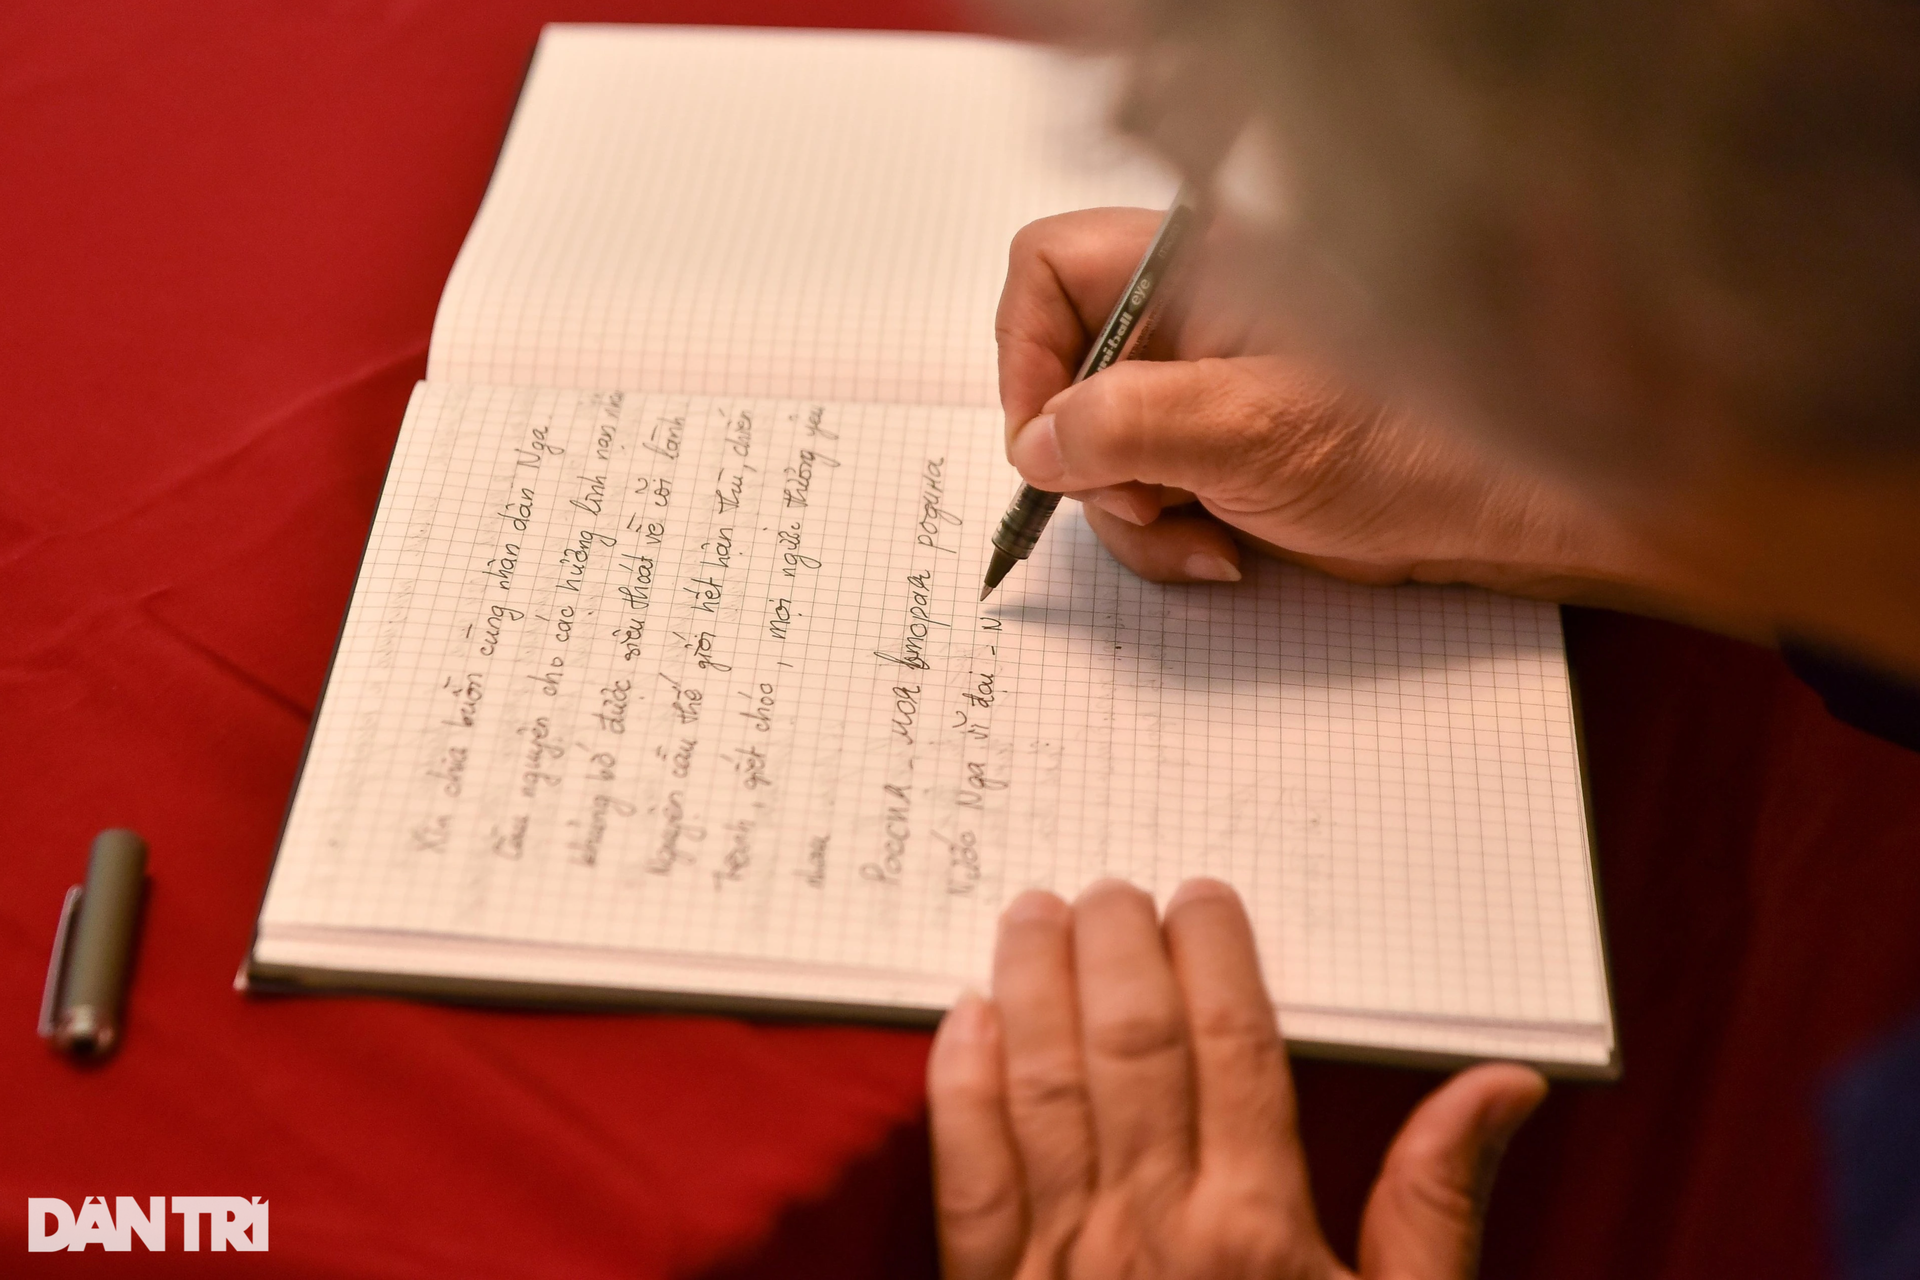 Xin chia buồn cùng nhân dân Nga.
Cầu nguyện cho các hương linh nạn nhân
khủng bố được siêu thoát về cõi lành
Nguyện cầu thế giới hết hận thù, chiến
tranh, giết chóc, mọi người thương yêu
nhau
Россия - моя вторая родина
Nước Nga vĩ đại - N
uni-ball eye
DÂN TRÍ